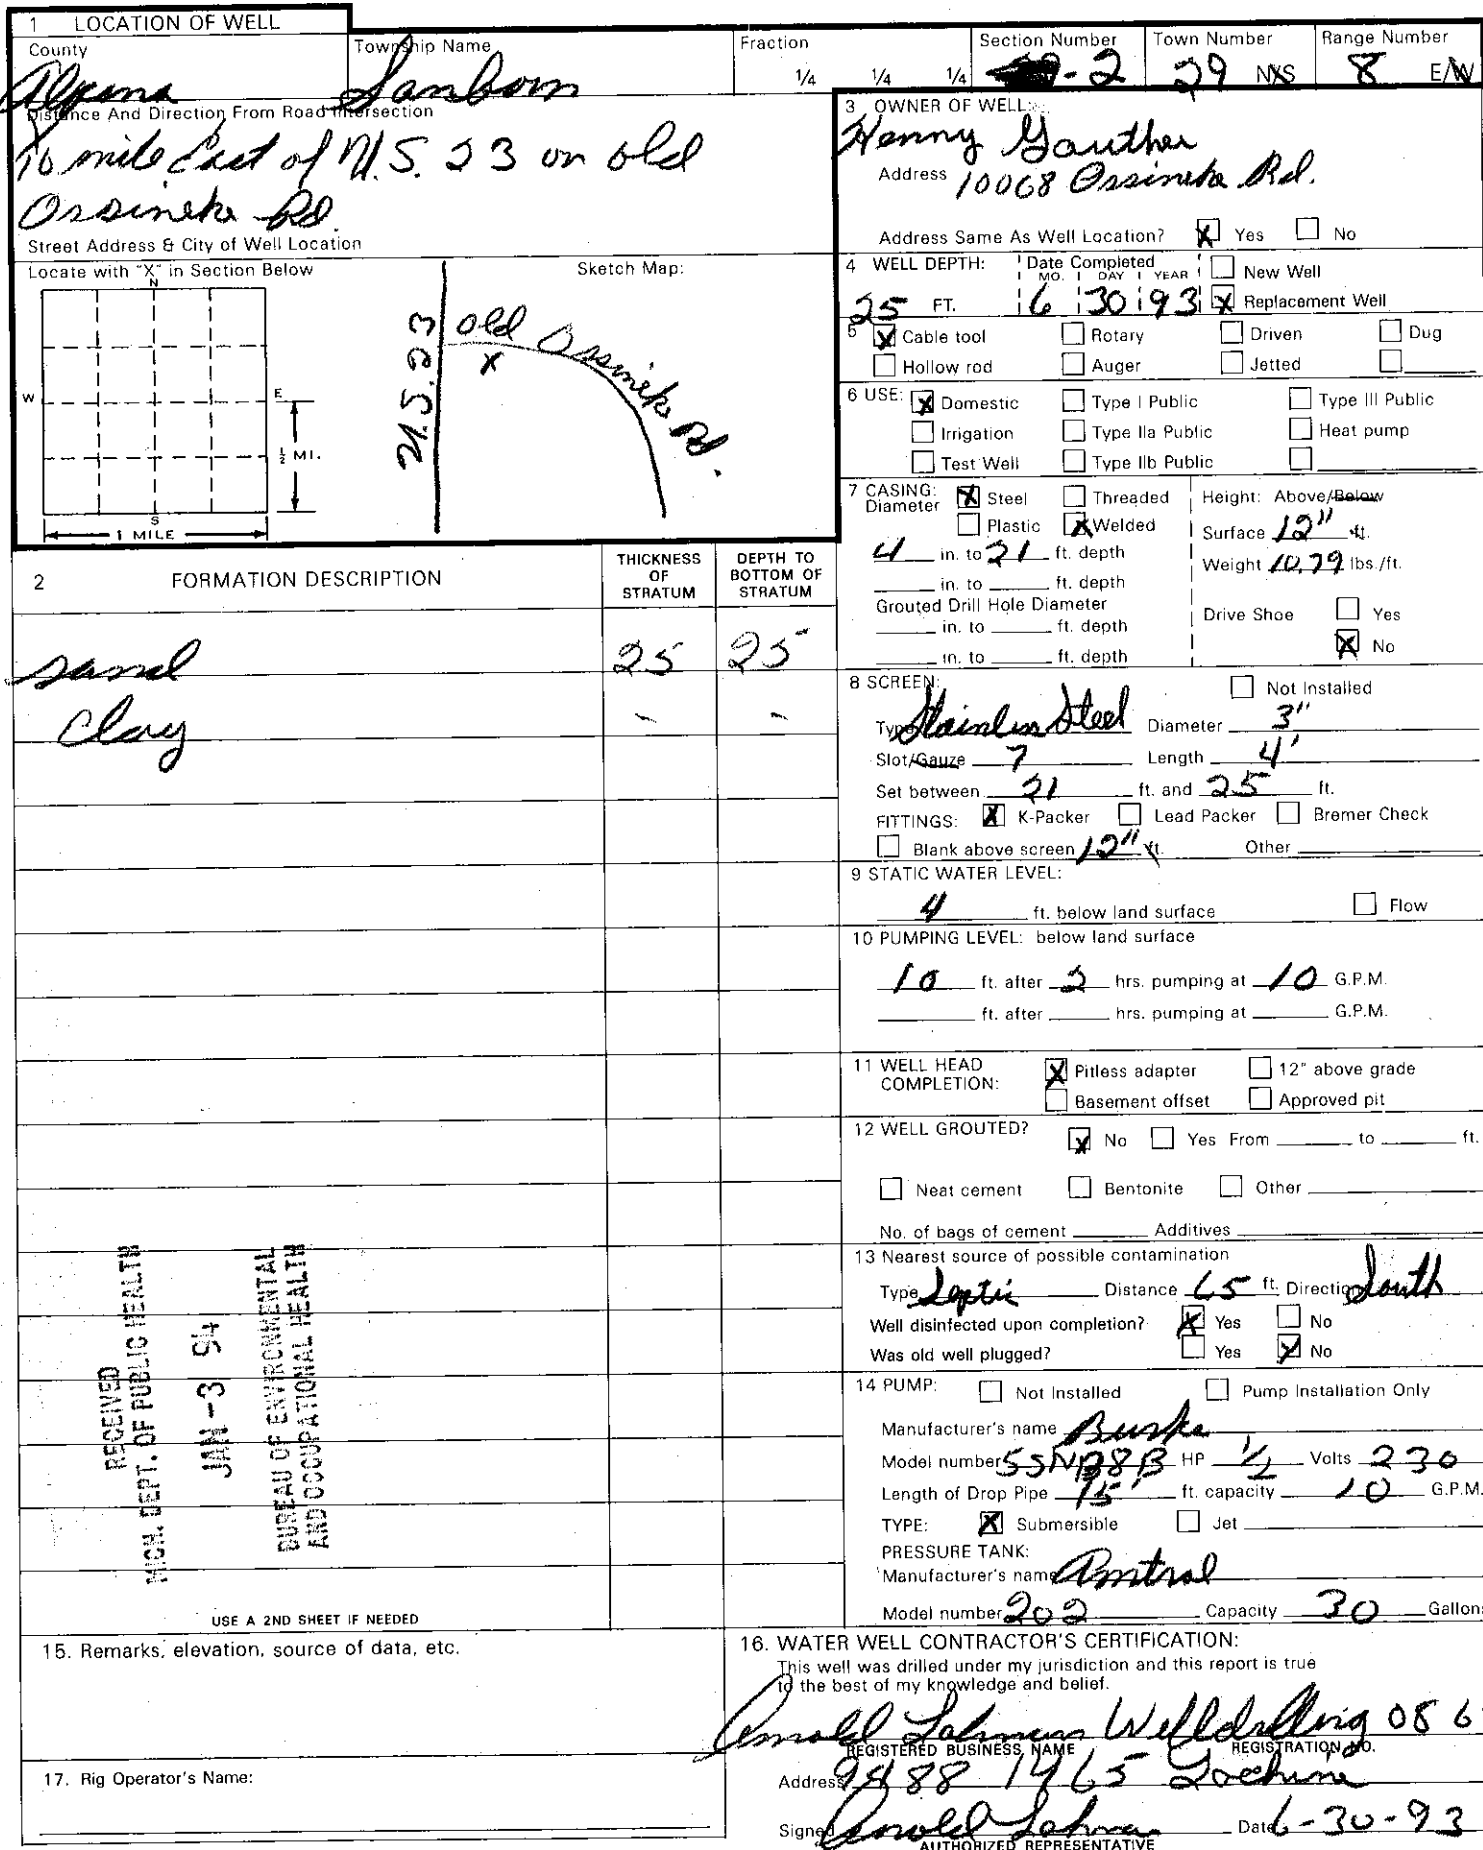 1 LOCATION OF WELL
County Township Name Fraction Section Number Town Number Range Number
Alpena Sanborn 1/4 1/4 1/4 -2 29 N/S 8 E/W
Distance And Direction From Road Intersection
mile East of U.S. 23 on old
Ossineke Rd.
Street Address & City of Well Location
Locate with "X" in Section Below
Sketch Map:
N
W
E
S
½ MI.
1 MILE
U.S. 23
old Ossineke Rd.
X
3 OWNER OF WELL:
Henny Gauther
Address 10068 Ossineke Rd.
Address Same As Well Location? X Yes No
4 WELL DEPTH: Date Completed New Well
MO. DAY YEAR
25 FT. 6 30 93 X Replacement Well
5 X Cable tool Rotary Driven Dug
Hollow rod Auger Jetted
6 USE: X Domestic Type I Public Type III Public
Irrigation Type IIa Public Heat pump
Test Well Type IIb Public
7 CASING: X Steel Threaded Height: Above/Below
Diameter Plastic X Welded Surface 12" ft.
4 in. to 21 ft. depth Weight 10.79 lbs./ft.
in. to ft. depth
Grouted Drill Hole Diameter Drive Shoe Yes
in. to ft. depth
in. to ft. depth X No
2 FORMATION DESCRIPTION
THICKNESS OF STRATUM
DEPTH TO BOTTOM OF STRATUM
sand 25 25
Clay - -
8 SCREEN: Not Installed
Type Stainless Steel Diameter 3"
Slot/Gauze 7 Length 4'
Set between 21 ft. and 25 ft.
FITTINGS: X K-Packer Lead Packer Bremer Check
Blank above screen 12" ft. Other
9 STATIC WATER LEVEL:
4 ft. below land surface Flow
10 PUMPING LEVEL: below land surface
10 ft. after 2 hrs. pumping at 10 G.P.M.
ft. after hrs. pumping at G.P.M.
11 WELL HEAD X Pitless adapter 12" above grade
COMPLETION: Basement offset Approved pit
12 WELL GROUTED? X No Yes From to ft.
Neat cement Bentonite Other
No. of bags of cement Additives
13 Nearest source of possible contamination
Type Septic Distance 65 ft. Direction South
Well disinfected upon completion? X Yes No
Was old well plugged? Yes X No
14 PUMP: Not Installed Pump Installation Only
Manufacturer's name Burke
Model number 5SNB8B HP 1/2 Volts 230
Length of Drop Pipe 15' ft. capacity 10 G.P.M.
TYPE: X Submersible Jet
PRESSURE TANK:
Manufacturer's name Amtrol
Model number 202 Capacity 30 Gallons
RECEIVED
MICH. DEPT. OF PUBLIC HEALTH
JAN -3 94
BUREAU OF ENVIRONMENTAL
AND OCCUPATIONAL HEALTH
USE A 2ND SHEET IF NEEDED
15. Remarks, elevation, source of data, etc.
17. Rig Operator's Name:
16. WATER WELL CONTRACTOR'S CERTIFICATION:
This well was drilled under my jurisdiction and this report is true
to the best of my knowledge and belief.
Arnold Lahman Welldrilling 08 6
REGISTERED BUSINESS NAME REGISTRATION NO.
Address 1465
Signed Arnold Lahman Date 6-30-93
AUTHORIZED REPRESENTATIVE